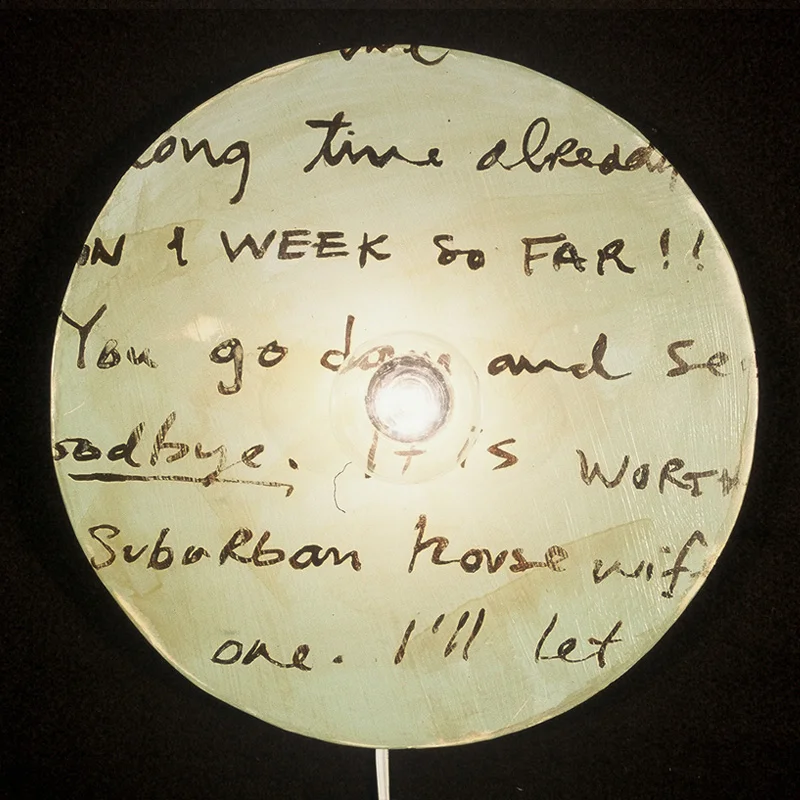 long time already
IN 1 WEEK SO FAR!!
You go down and se
oodbye. It is WORTH
Suburban house wif
one. I'll let